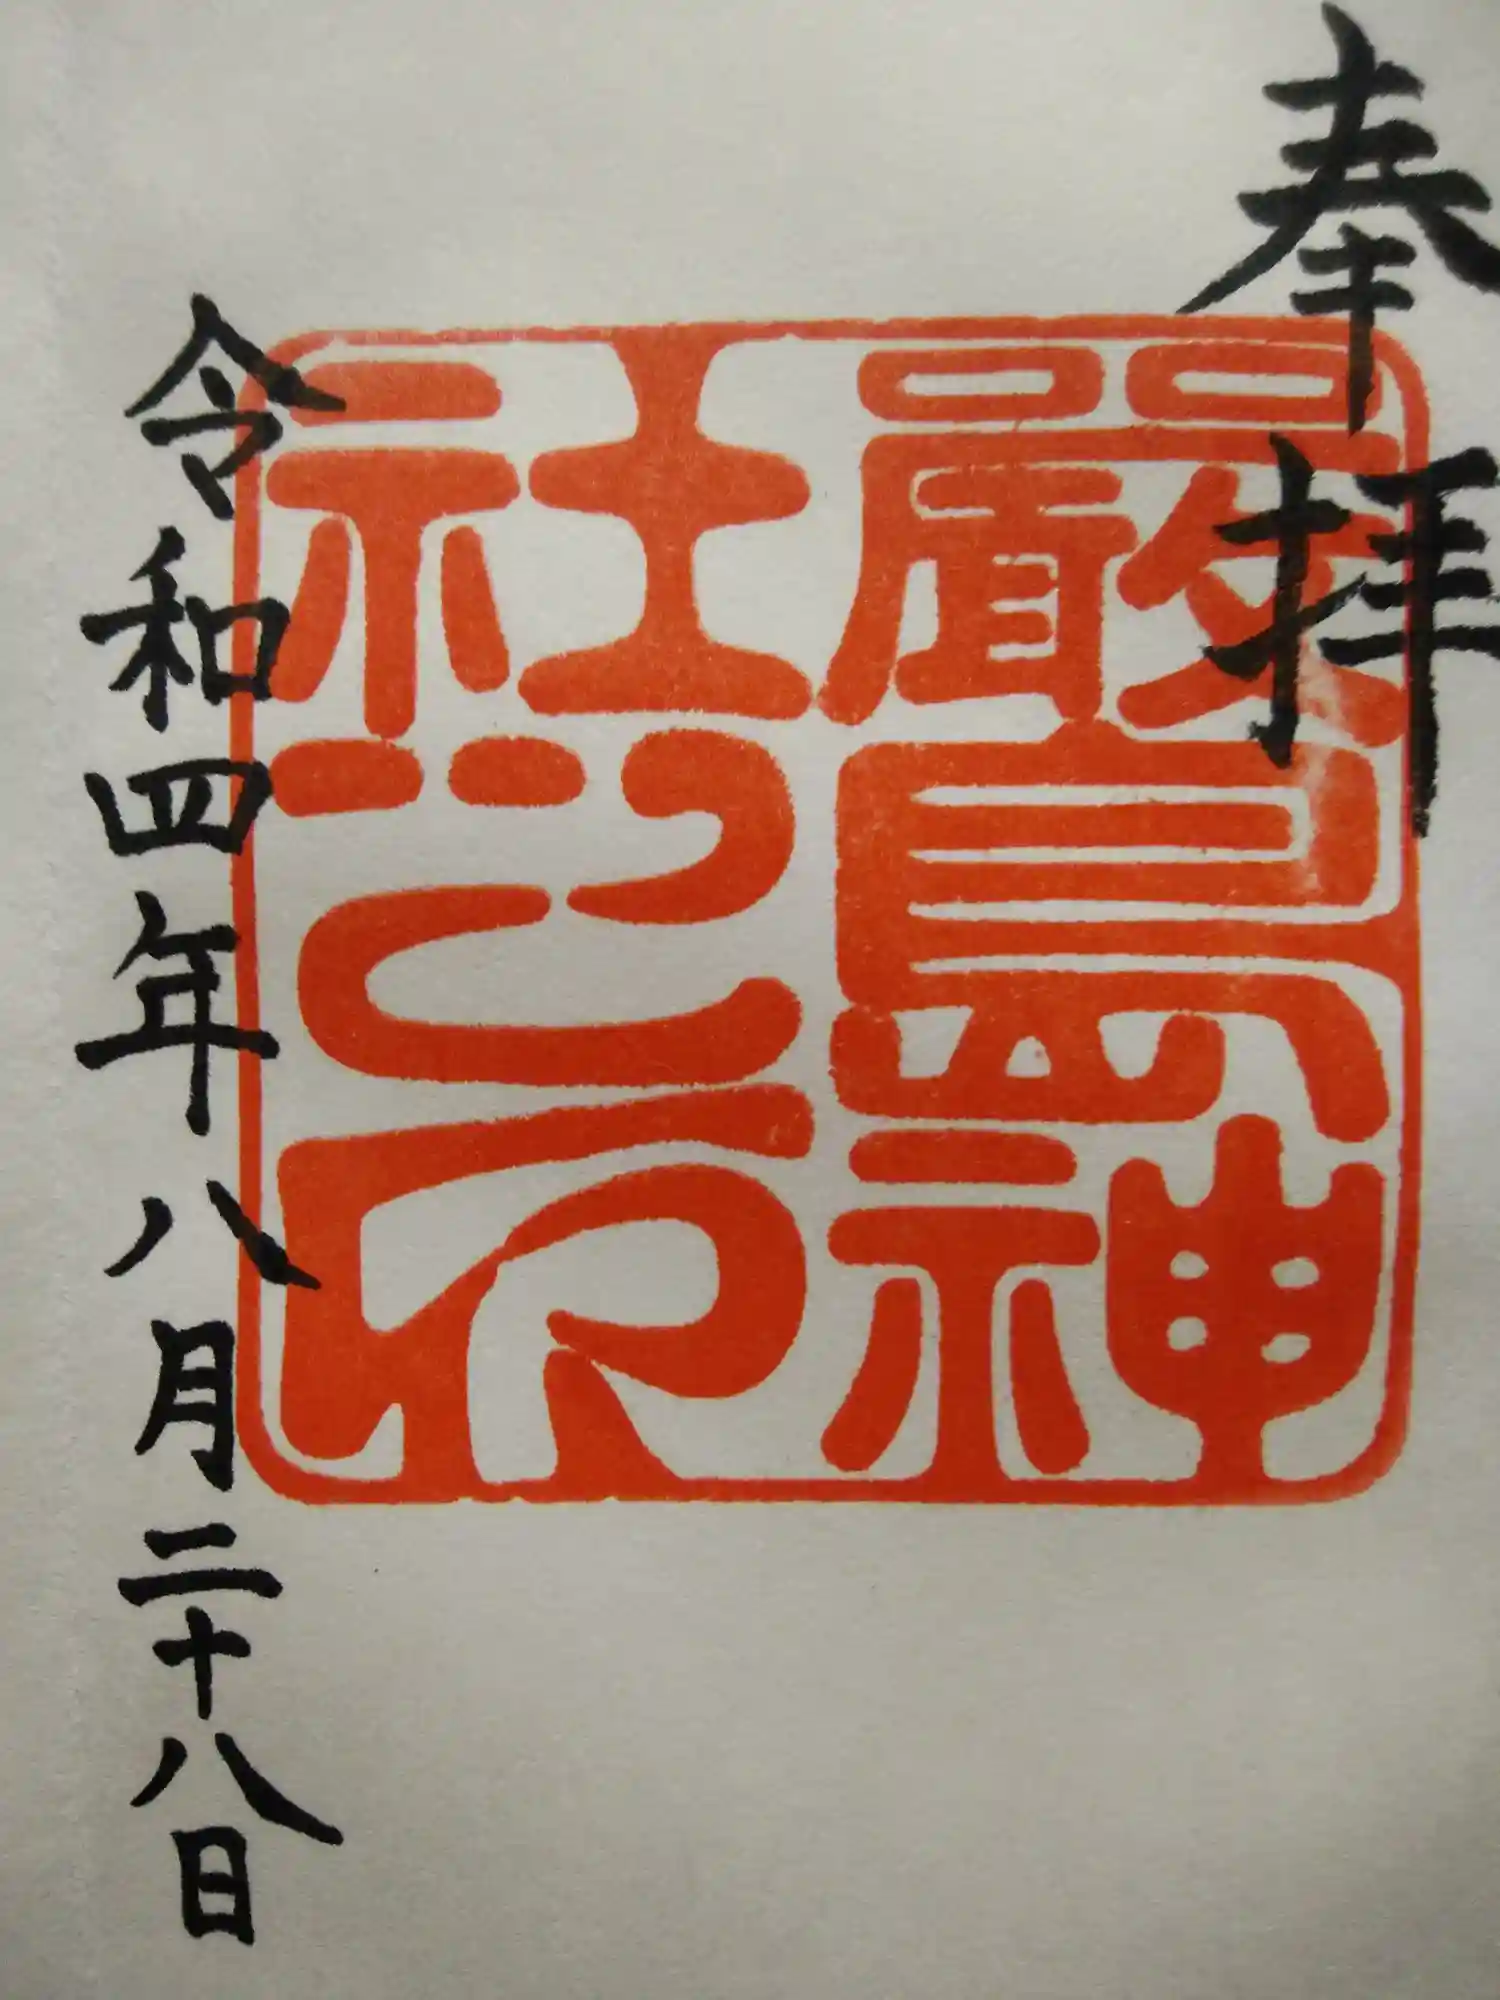 奉拝
嚴島神
社之印
令和四年八月二十八日